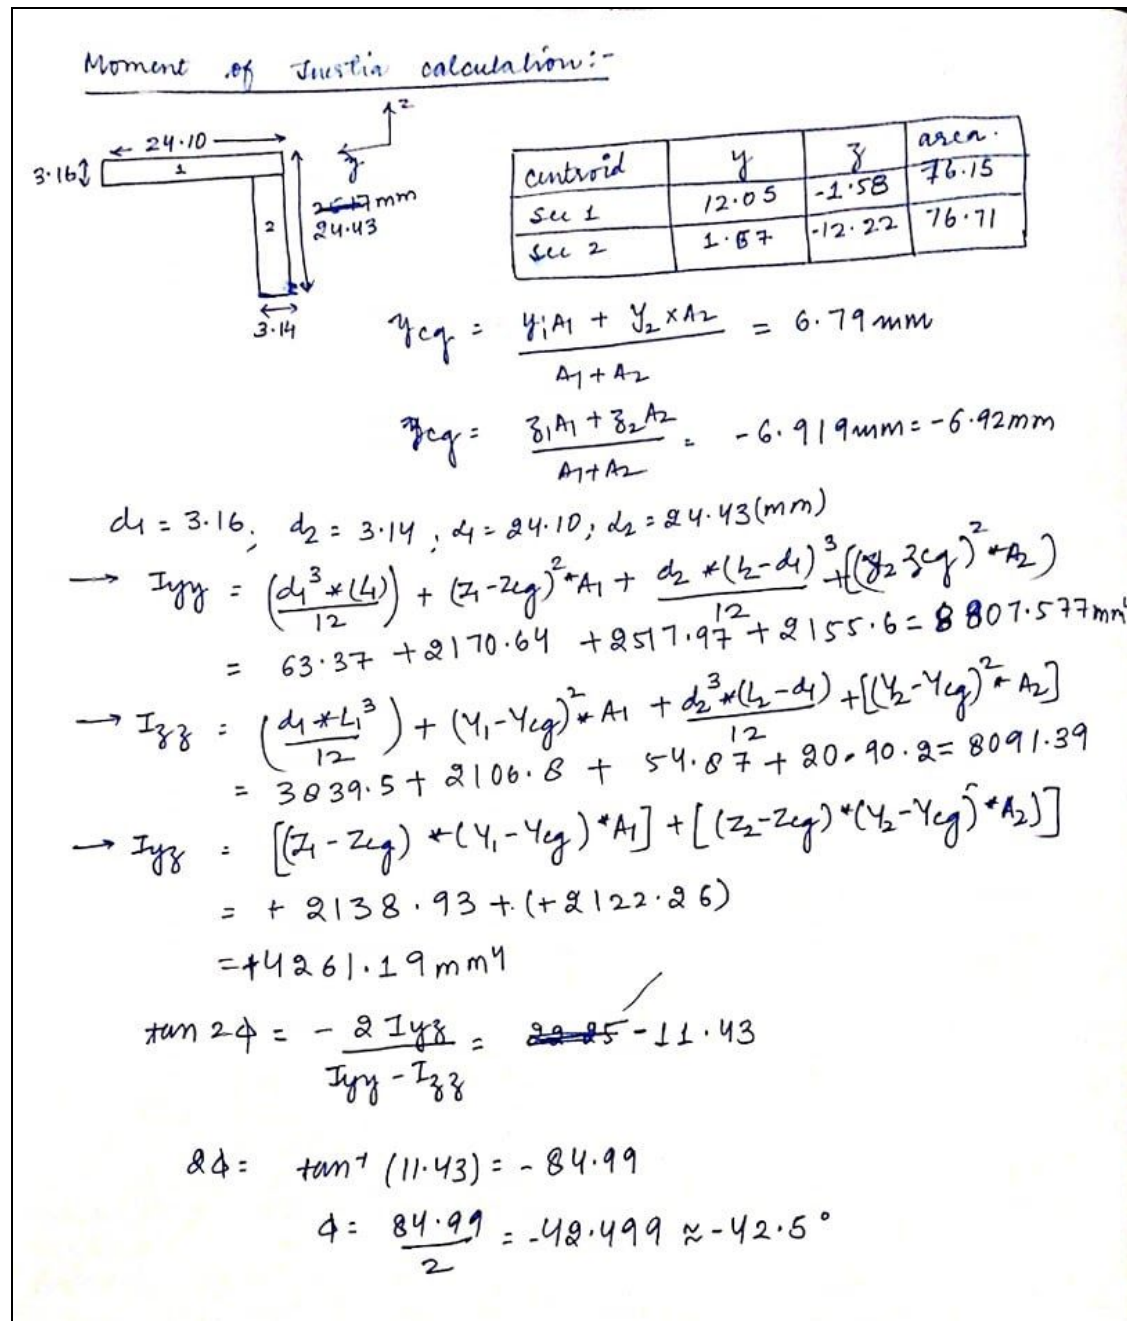 Moment of Inertia calculation:-
z
24.10
3.16
1
y
mm
24.43
2
3.14
centroid y z area.
sec 1 12.05 -1.58 76.15
sec 2 1.57 -12.22 76.71
Ycg = (y1A1 + y2×A2)/(A1+A2) = 6.79 mm
Zcg = (z1A1 + z2A2)/(A1+A2) = -6.919mm = -6.92mm
d1 = 3.16, d2 = 3.14, L1 = 24.10; L2 = 24.43(mm)
→ Iyy = (d1³*(L1)/12) + (Z1-Zcg)²*A1 + d2*(L2-d1)³/12 + ((z2 zcg)²*A2)
= 63.37 + 2170.64 + 2517.97 + 2155.6 = 8807.577mm⁴
→ Izz = (d1*L1³/12) + (Y1-Ycg)²*A1 + d2³*(L2-d1)/12 + [(Y2-Ycg)²*A2]
= 3839.5 + 2106.8 + 54.87 + 20.90.2 = 8091.39
→ Iyz = [(Z1-Zcg)*(Y1-Ycg)*A1] + [(Z2-Zcg)*(Y2-Ycg)*A2)]
= +2138.93 + (+2122.26)
= +4261.19mm4
tan 2φ = - 2Iyz/(Iyy-Izz) = -11.43
2φ = tan⁻¹ (11.43) = -84.99
φ = 84.99/2 = -42.499 ≈ -42.5°